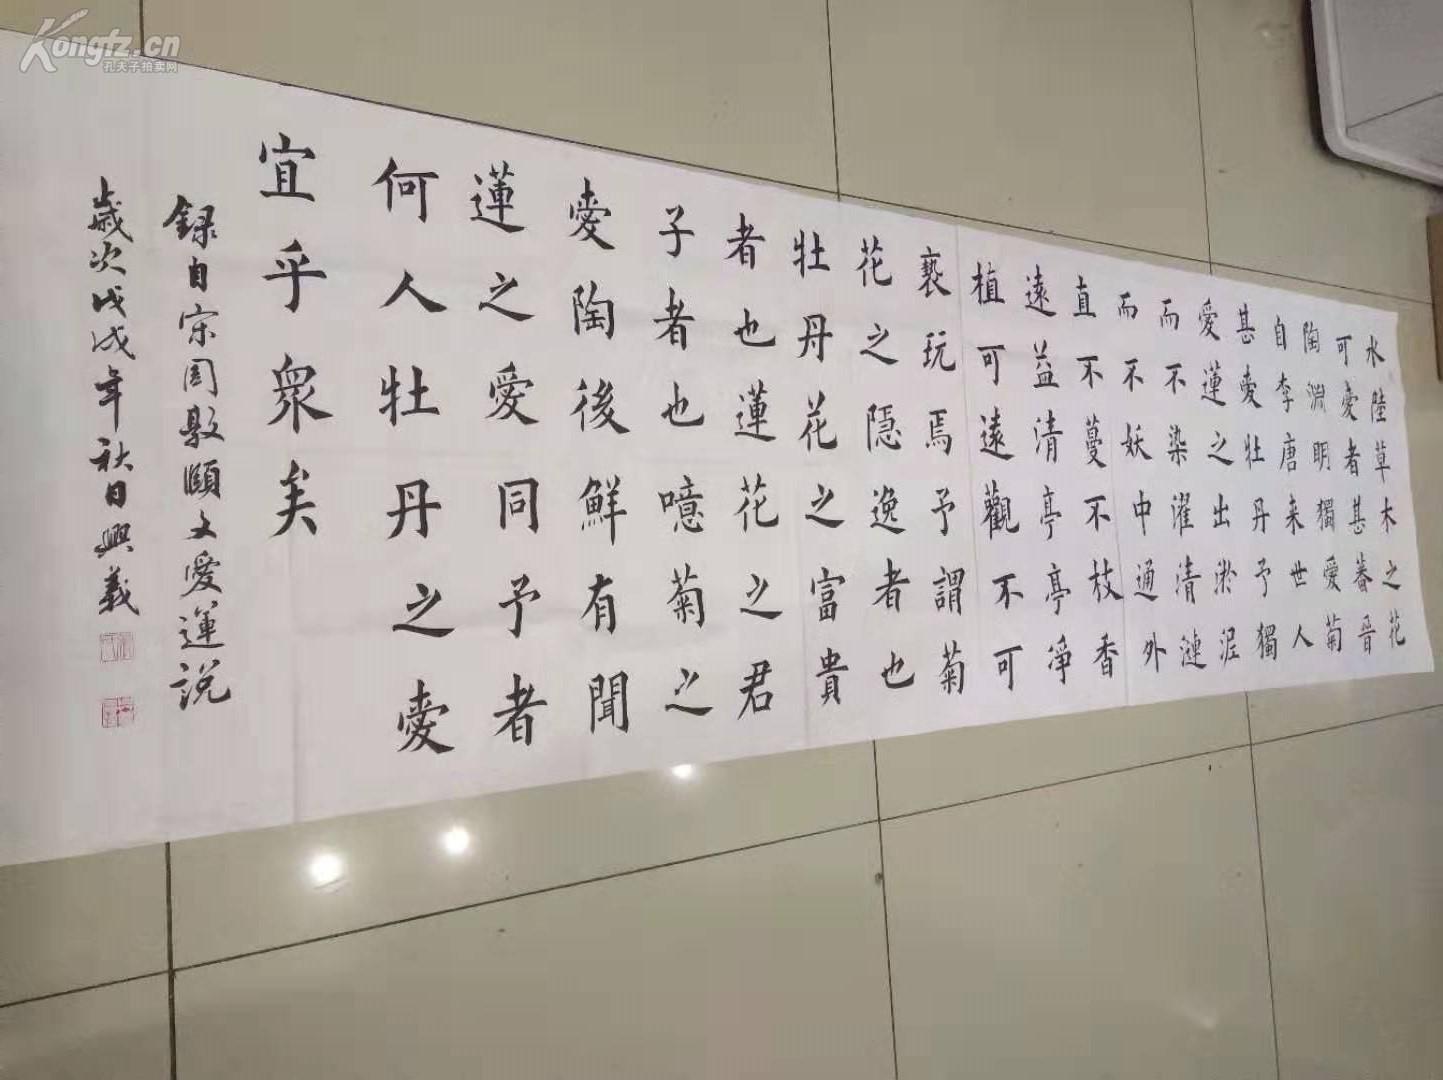 水陸草木之花
可愛者甚蕃晉
陶淵明獨愛菊
自李唐来世人
甚愛牡丹予獨
愛蓮之出淤泥
而不染濯清漣
而不妖中通外
直不蔓不枝香
遠益清亭亭淨
植可遠觀不可
褻玩焉予謂菊
花之隱逸者也
牡丹花之富貴
者也蓮花之君
子者也噫菊之
愛陶後鮮有聞
蓮之愛同予者
何人牡丹之愛
宜乎衆矣
録自宋周敦頤文愛蓮説
歲次戊戌年秋日興義
Kongfz.cn
孔夫子拍卖网